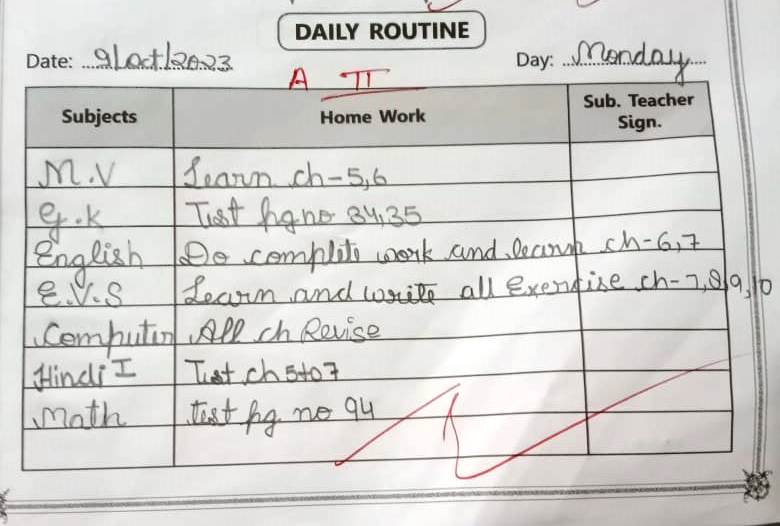 DAILY ROUTINE
Date: 9/Oct/2023 Day: Monday
A II
Subjects Home Work Sub. Teacher Sign.
M.V Learn ch-5,6
G.K Test pg no 34,35
English Do complete work and learn ch-6,7
E.V.S Learn and write all Exercise ch-7,8,9,10
Computer All ch Revise
Hindi I Test ch 5to7
Math test pg no 94